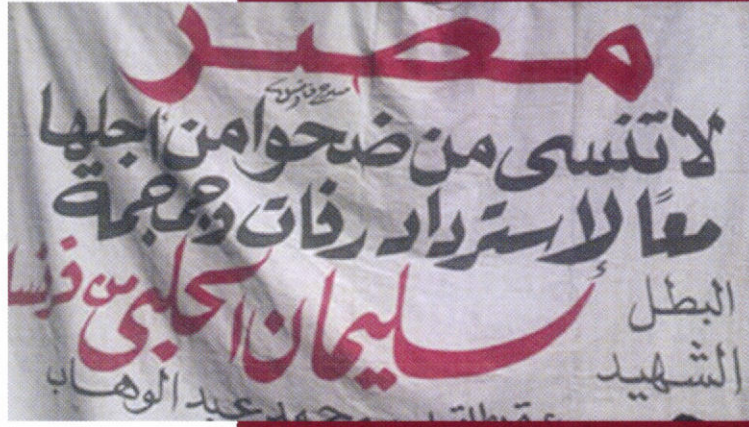 مصر
لا تنسى من ضحوا من أجلها
معًا لاسترداد رفات وجمجمة
البطل
الشهيد
سليمان الحلبي من فرنسا
محمد عبد الوهاب